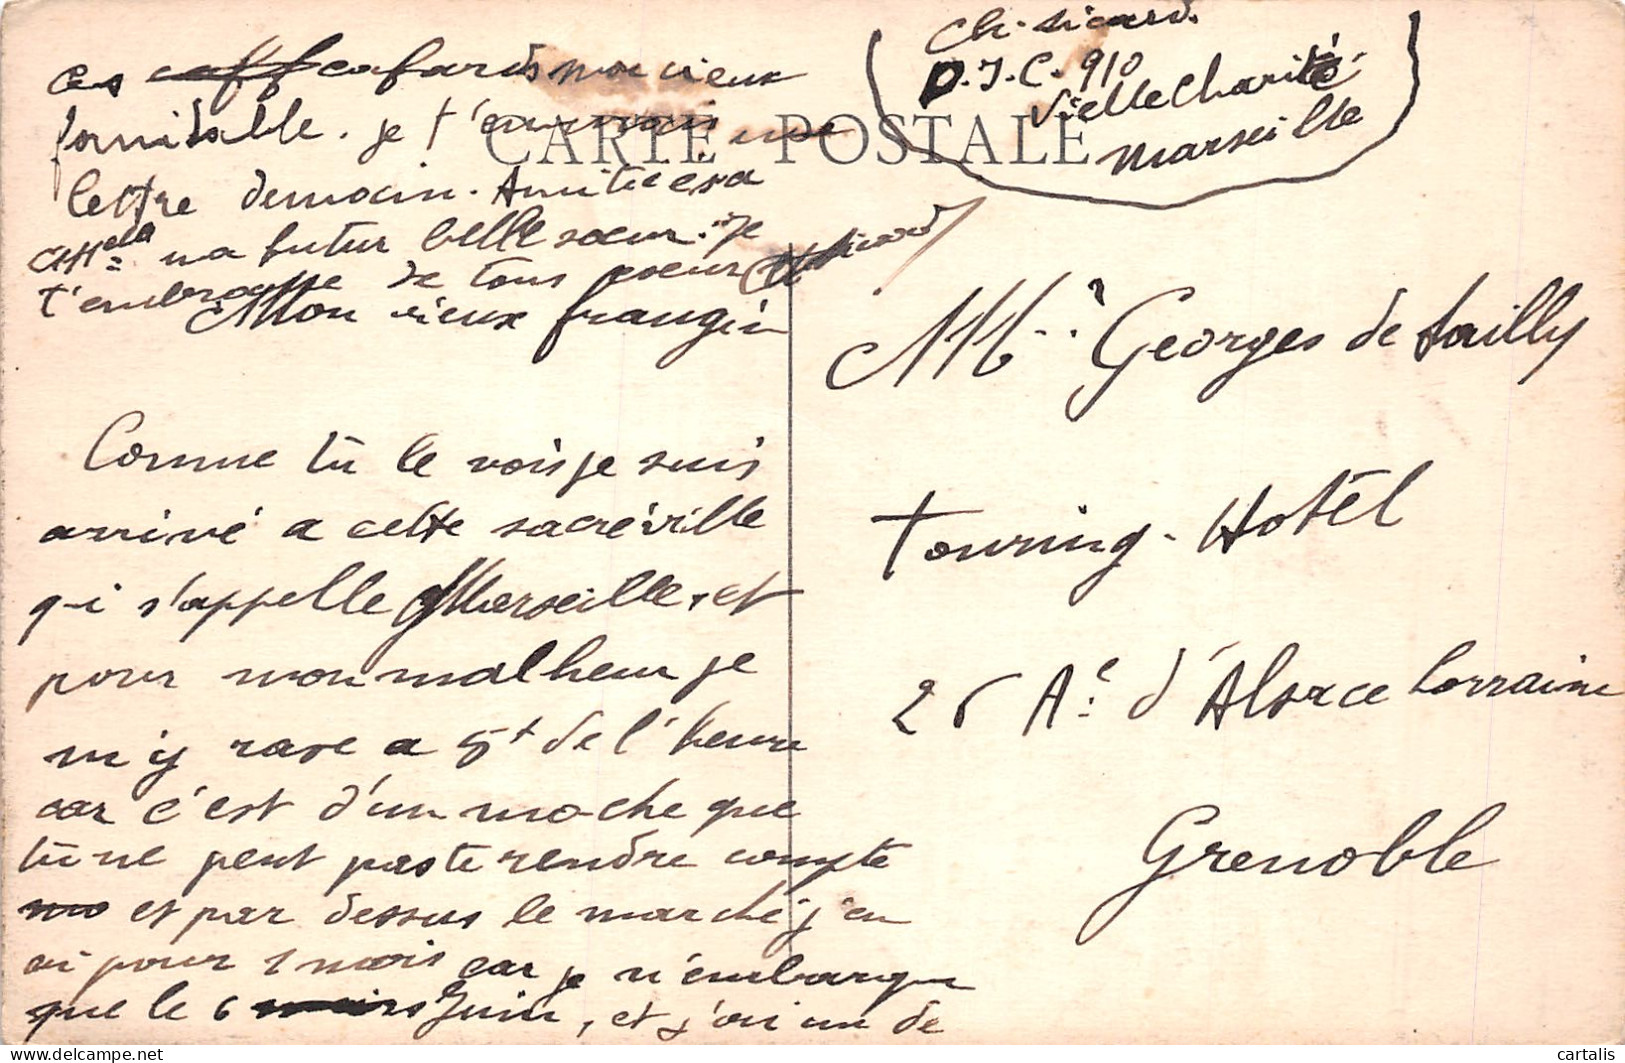 CARTE POSTALE
Ch. Sicard.
D.I.C. 910
Vielle Charité
Marseille
Mon vieux frangin
Comme tu le vois je suis
arrivé a cette sacré ville
qui s'appelle Marseille, et
pour mon malheur je
m'y rase a 5t de l'heure
car c'est d'un moche que
tu ne peut pas te rendre compte
et par dessus le marché j'en
ai pour 1 mois car je n'embarque
que le 6 Juin, et j'ai un de
ces cafards mon vieux
formidable. je t'enverrais une
lettre demain. Amitiées a
Melle ma futur belle sœur. Je
t'embrasse de tous coeur
Ch Sicard
Mr Georges de Sailly
Touring-Hotêl
26 Ae d'Alsace Lorraine
Grenoble
cartalis
Delcampe.net